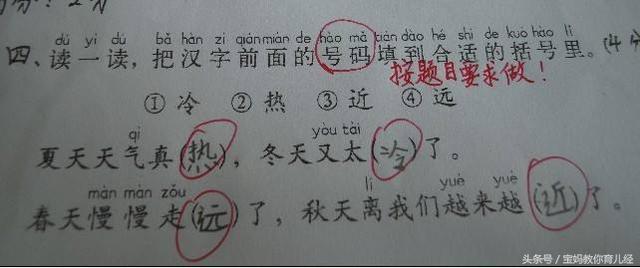 dú yi dú bǎ hàn zì qián miàn de hào mǎ tián dào hé shì de kuò hào lǐ
四、读一读，把汉字前面的号码填到合适的括号里。(4分
按题目要求做！
①冷 ②热 ③近 ④远
qì yòu tài
夏天天气真(热)，冬天又太(冷)了。
màn màn zǒu lí yuè yuè
春天慢慢走(远)了，秋天离我们越来越(近)了。
头条号／宝妈教你育儿经